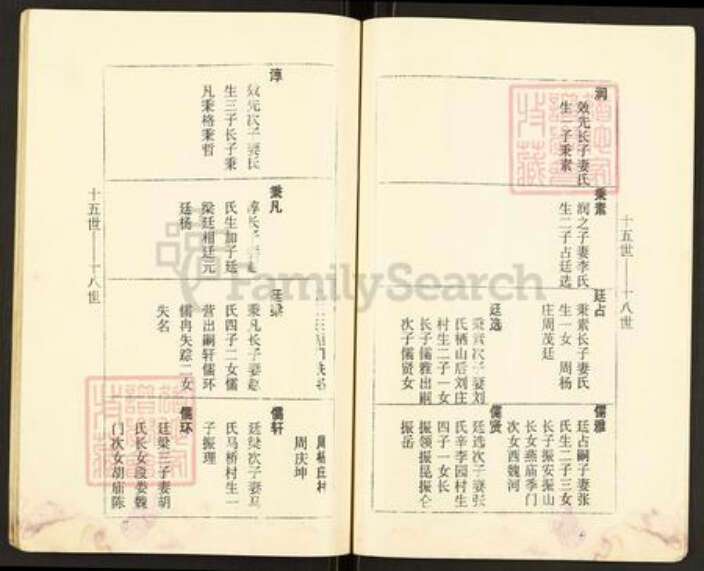 十五世——十八世
润
效先长子妻氏
生一子秉素
秉素
润之子妻李氏
生二子占廷选
廷占
秉素长子妻氏
生一女 周杨
庄周茂廷
廷选
秉素次子妻刘
氏栖山后刘庄
村生二子一女
长子儒雅出嗣
次子儒贤女
儒雅
廷占嗣子妻张
氏生二子三女
长子振安振山
长女燕庙季门
次女西魏河
儒贤
廷选次子妻张
氏辛李园村生
四子一女长
振领振昆振仑
振岳
淳
效先次子妻氏
生三子长子秉
凡秉格秉哲
秉凡
淳长子
氏生加子廷
梁廷相廷元
廷杨
廷梁
秉凡长子妻赵
氏四子二女儒
营出嗣轩儒环
儒冉失踪二女
失名
周杨庄村
周庆坤
儒轩
廷梁次子妻马
氏马桥村生一
子振理
儒环
廷梁三子妻胡
氏长女段娄魏
门次女胡庙陈
十五世——十八世
FamilySearch